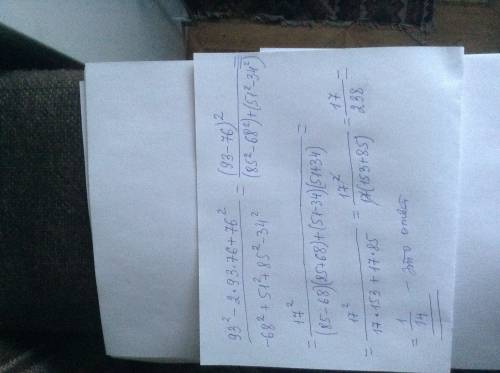 (93² - 2·93·76 + 76²) / (-68² + 51² + 85² - 34²) = (93-76)² / ((85²-68²)+(51²-34²)) =
= 17² / ((85-68)(85+68)+(51-34)(51+34)) =
= 17² / (17·153 + 17·85) = 17² / (17(153+85)) = 17/238 =
= 1/14 - это ответ